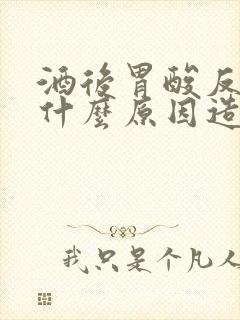 酒後胃酸反
什麼原因造
我只是个凡人